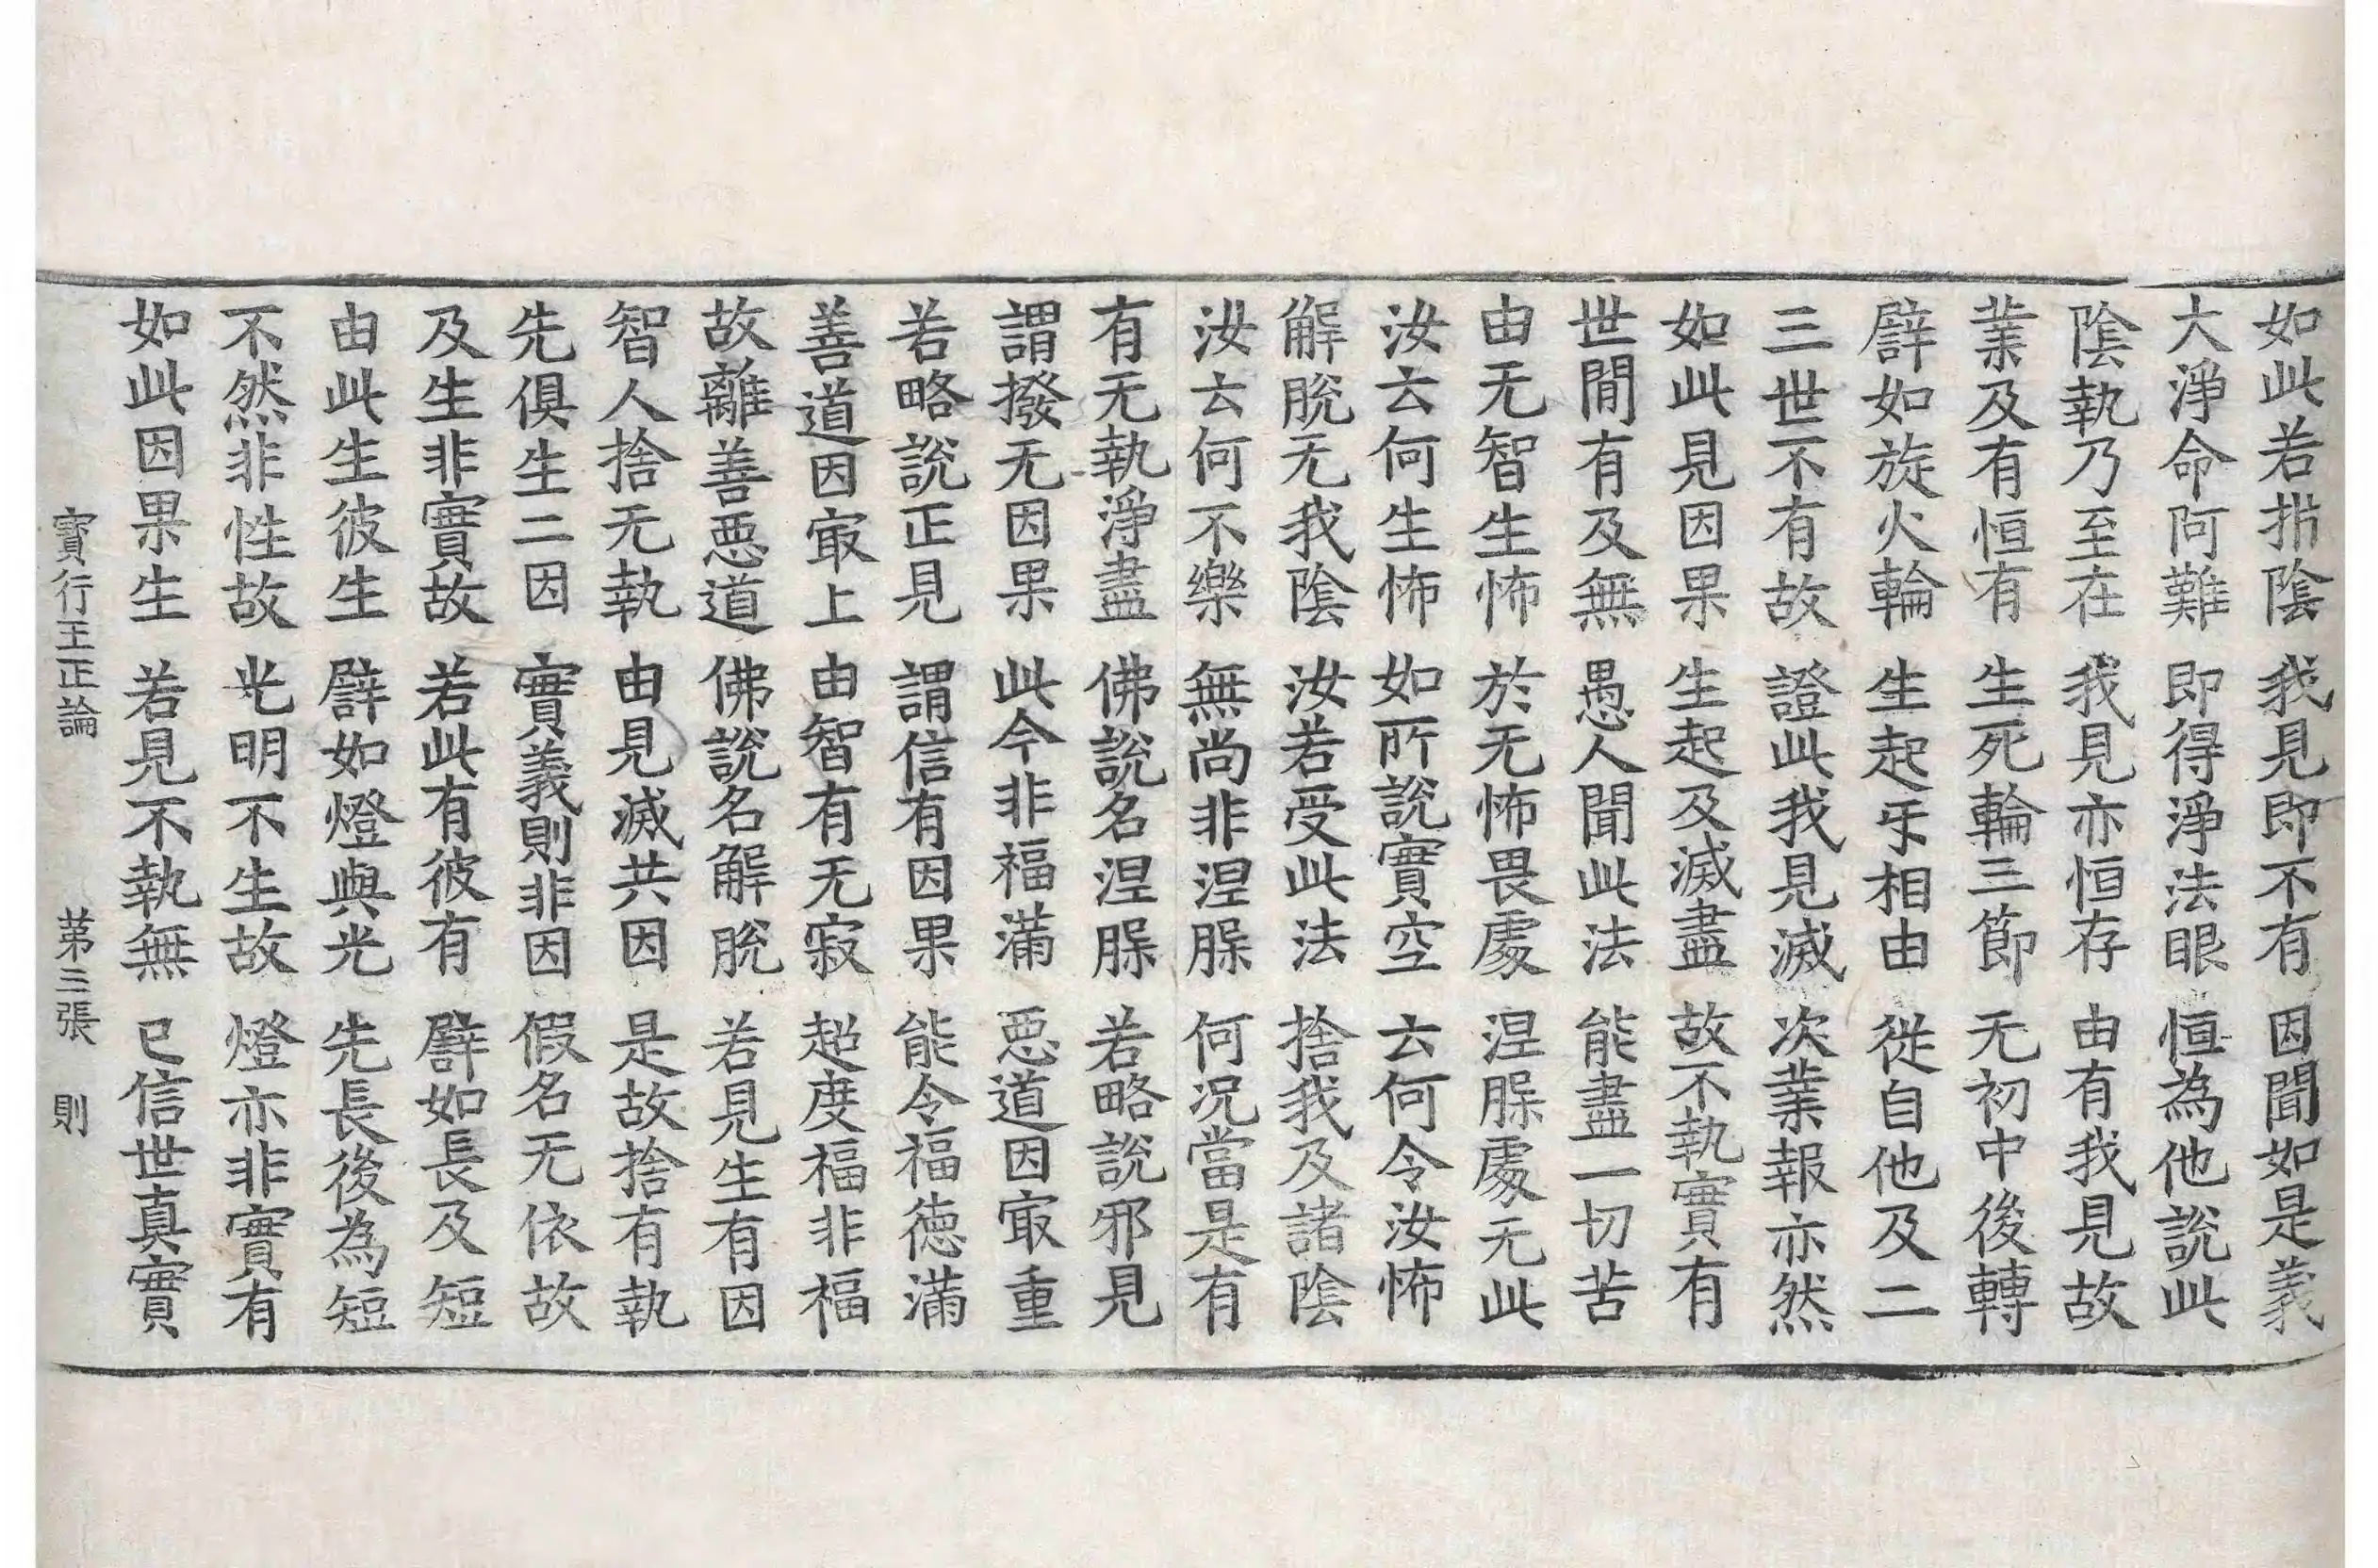 如此若㭊陰　我見即不有　因聞如是義
大淨命阿難　即得淨法眼　恒為他說此
陰執乃至在　我見亦恒存　由有我見故
業及有恒有　生死輪三節　无初中後轉
譬如旋火輪　生起㸦相由　從自他及二
三世不有故　證此我見滅　次業報亦然
如此見因果　生起及滅盡　故不執實有
世閒有及無　愚人聞此法　能盡一切苦
由无智生怖　於无怖畏處　涅脲處无此
汝云何生怖　如所說實空　云何令汝怖
解脫无我陰　汝若受此法　捨我及諸陰
汝云何不樂　無尚非涅脲　何況當是有
有无執淨盡　佛說名涅脲　若略說邪見
謂撥无因果　此今非福滿　惡道因㝡重
若略說正見　謂信有因果　能令福德滿
善道因㝡上　由智有无寂　超度福非福
故離善惡道　佛說名解脫　若見生有因
智人捨无執　由見滅共因　是故捨有執
先俱生二因　實義則非因　假名无依故
及生非實故　若此有彼有　譬如長及短
由此生彼生　譬如燈與光　先長後為短
不然非性故　光明不生故　燈亦非實有
如此因果生　若見不執無　已信世真實
寶行王正論　第三張　則